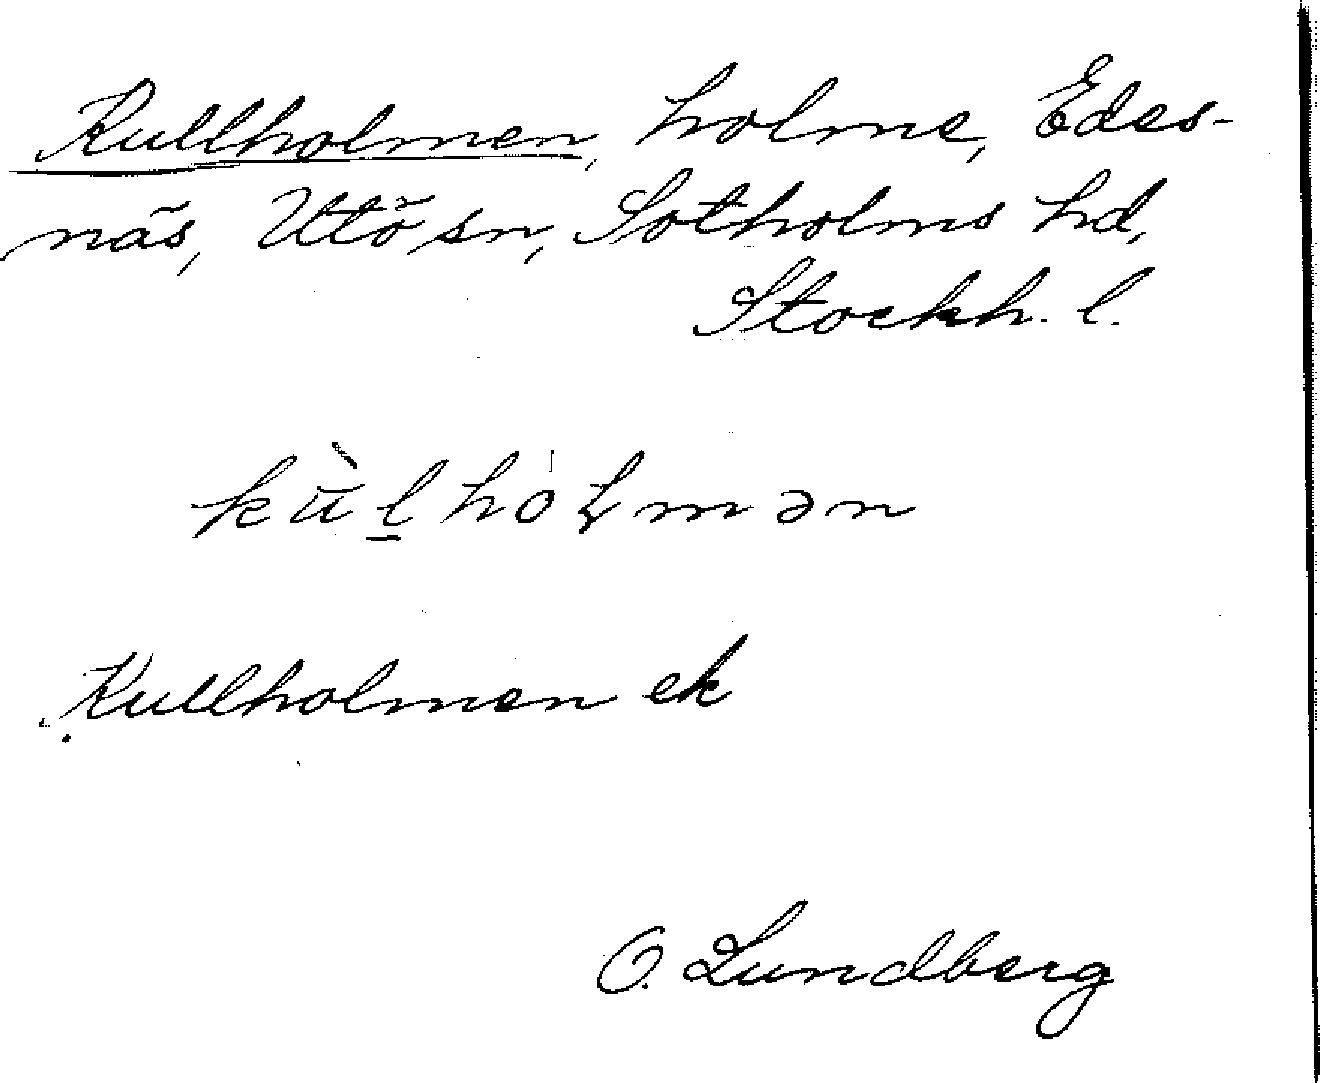 Kullholmen, holme, Edes-
näs, Utö sn, Sotholms hd,
Stockh. l.
kùl̠hólmən
Kullholmen ek
O. Lundberg